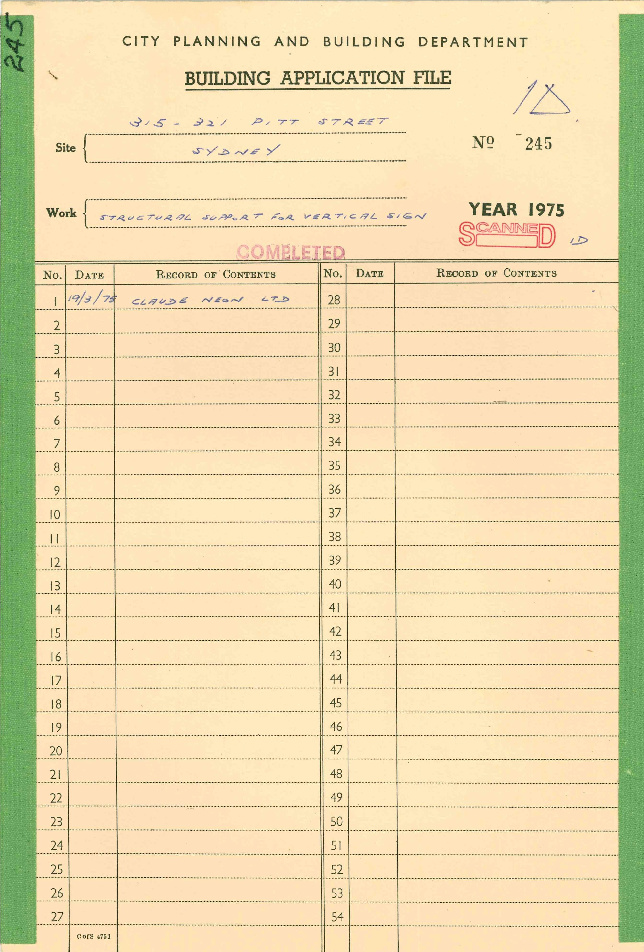 245
CITY PLANNING AND BUILDING DEPARTMENT
BUILDING APPLICATION FILE
1D
315 - 321 PITT STREET
Site
SYDNEY
Nº 245
Work
STRUCTURAL SUPPORT FOR VERTICAL SIGN
YEAR 1975
SCANNED
1D
COMPLETED
No. DATE RECORD OF CONTENTS No. DATE RECORD OF CONTENTS
1 19/3/75 CLAUDE NEON LTD 28
2 29
3 30
4 31
5 32
6 33
7 34
8 35
9 36
10 37
11 38
12 39
13 40
14 41
15 42
16 43
17 44
18 45
19 46
20 47
21 48
22 49
23 50
24 51
25 52
26 53
27 54
C of S 4751